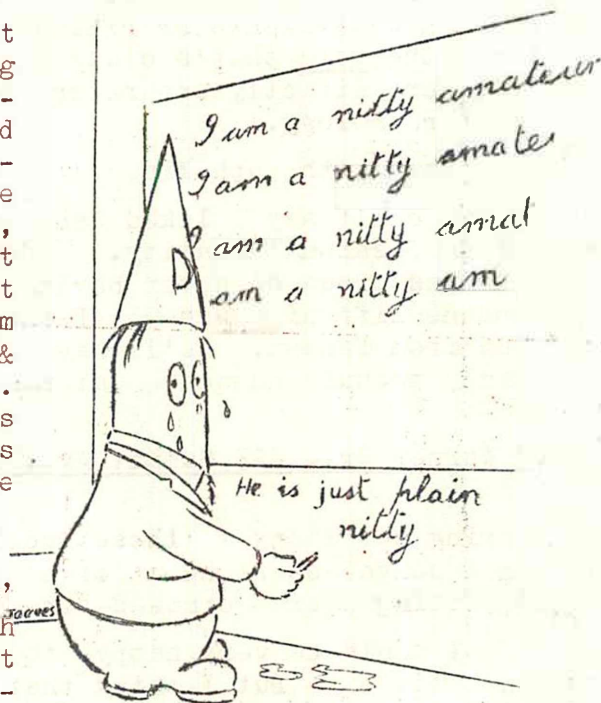 t
g
-
d
-
e
,
t
t
m
&
.
s
s
e
,
h
t
-
I am a nitty amateur
I am a nitty amate
I am a nitty amat
D
am a nitty am
He is just plain
nitty
Joaves